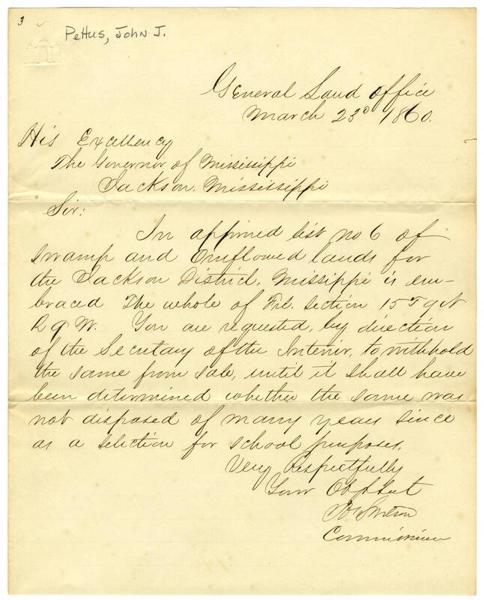 3
Pettus, John J.
General Land Office
March 23d 1860.
His Excellency
The Governor of Mississippi
Jackson, Mississippi
Sir:
In approved list no 6 of
swamp and overflowed lands for
the Jackson District, Mississippi is em-
braced The whole of Frl. Section 15 T 9 N
R 9 W. You are requested, by direction
of the Secretary of the Interior, to withhold
the same from sale, until it shall have
been determined whether the same was
not disposed of many years since
as a selection for school purposes.
Very respectfully
Your Obt Svt
Wilson
Commissioner